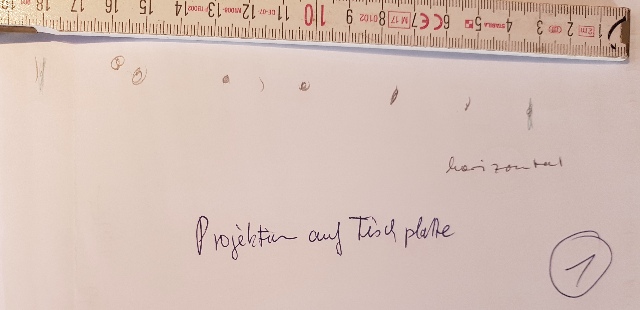 18 17 16 15 14 13 12 11 10 9 8 7 6 5 4 3 2 1
horizontal
Projektion auf Tischplatte
1